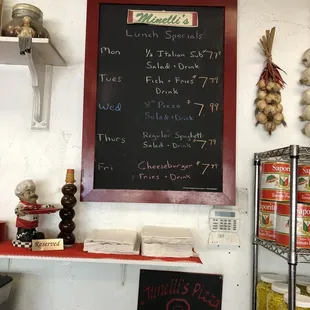 Minelli's
Lunch Specials
Mon
½ Italian Sub
Salad + Drink
$7.99
Tues
Fish + Fries
Drink
$7.99
Wed
8" Pizza
Salad + Drink
$7.99
Thurs
Regular Spaghetti
Salad + Drink
$7.99
Fri
Cheeseburger
Fries + Drink
$7.99
RESERVED
Saporito
Saporito
Minelli's Pizza